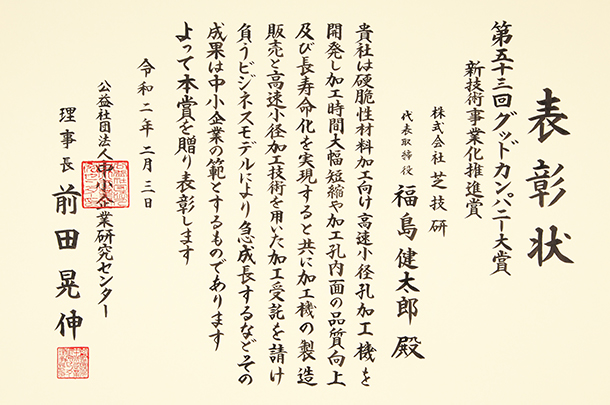 表彰状
第五十三回グッドカンパニー大賞
新技術事業化推進賞
株式会社 芝技研
代表取締役 福島健太郎 殿
貴社は硬脆性材料加工向け高速小径孔加工機を
開発し加工時間大幅短縮や加工孔内面の品質向上
及び長寿命化を実現すると共に加工機の製造
販売と高速小径加工技術を用いた加工受託を請け
負うビジネスモデルにより急成長するなどその
成果は中小企業の範とするものであります
よって本賞を贈り表彰します
令和二年二月三日
公益社団法人中小企業研究センター
理事長 前田晃伸